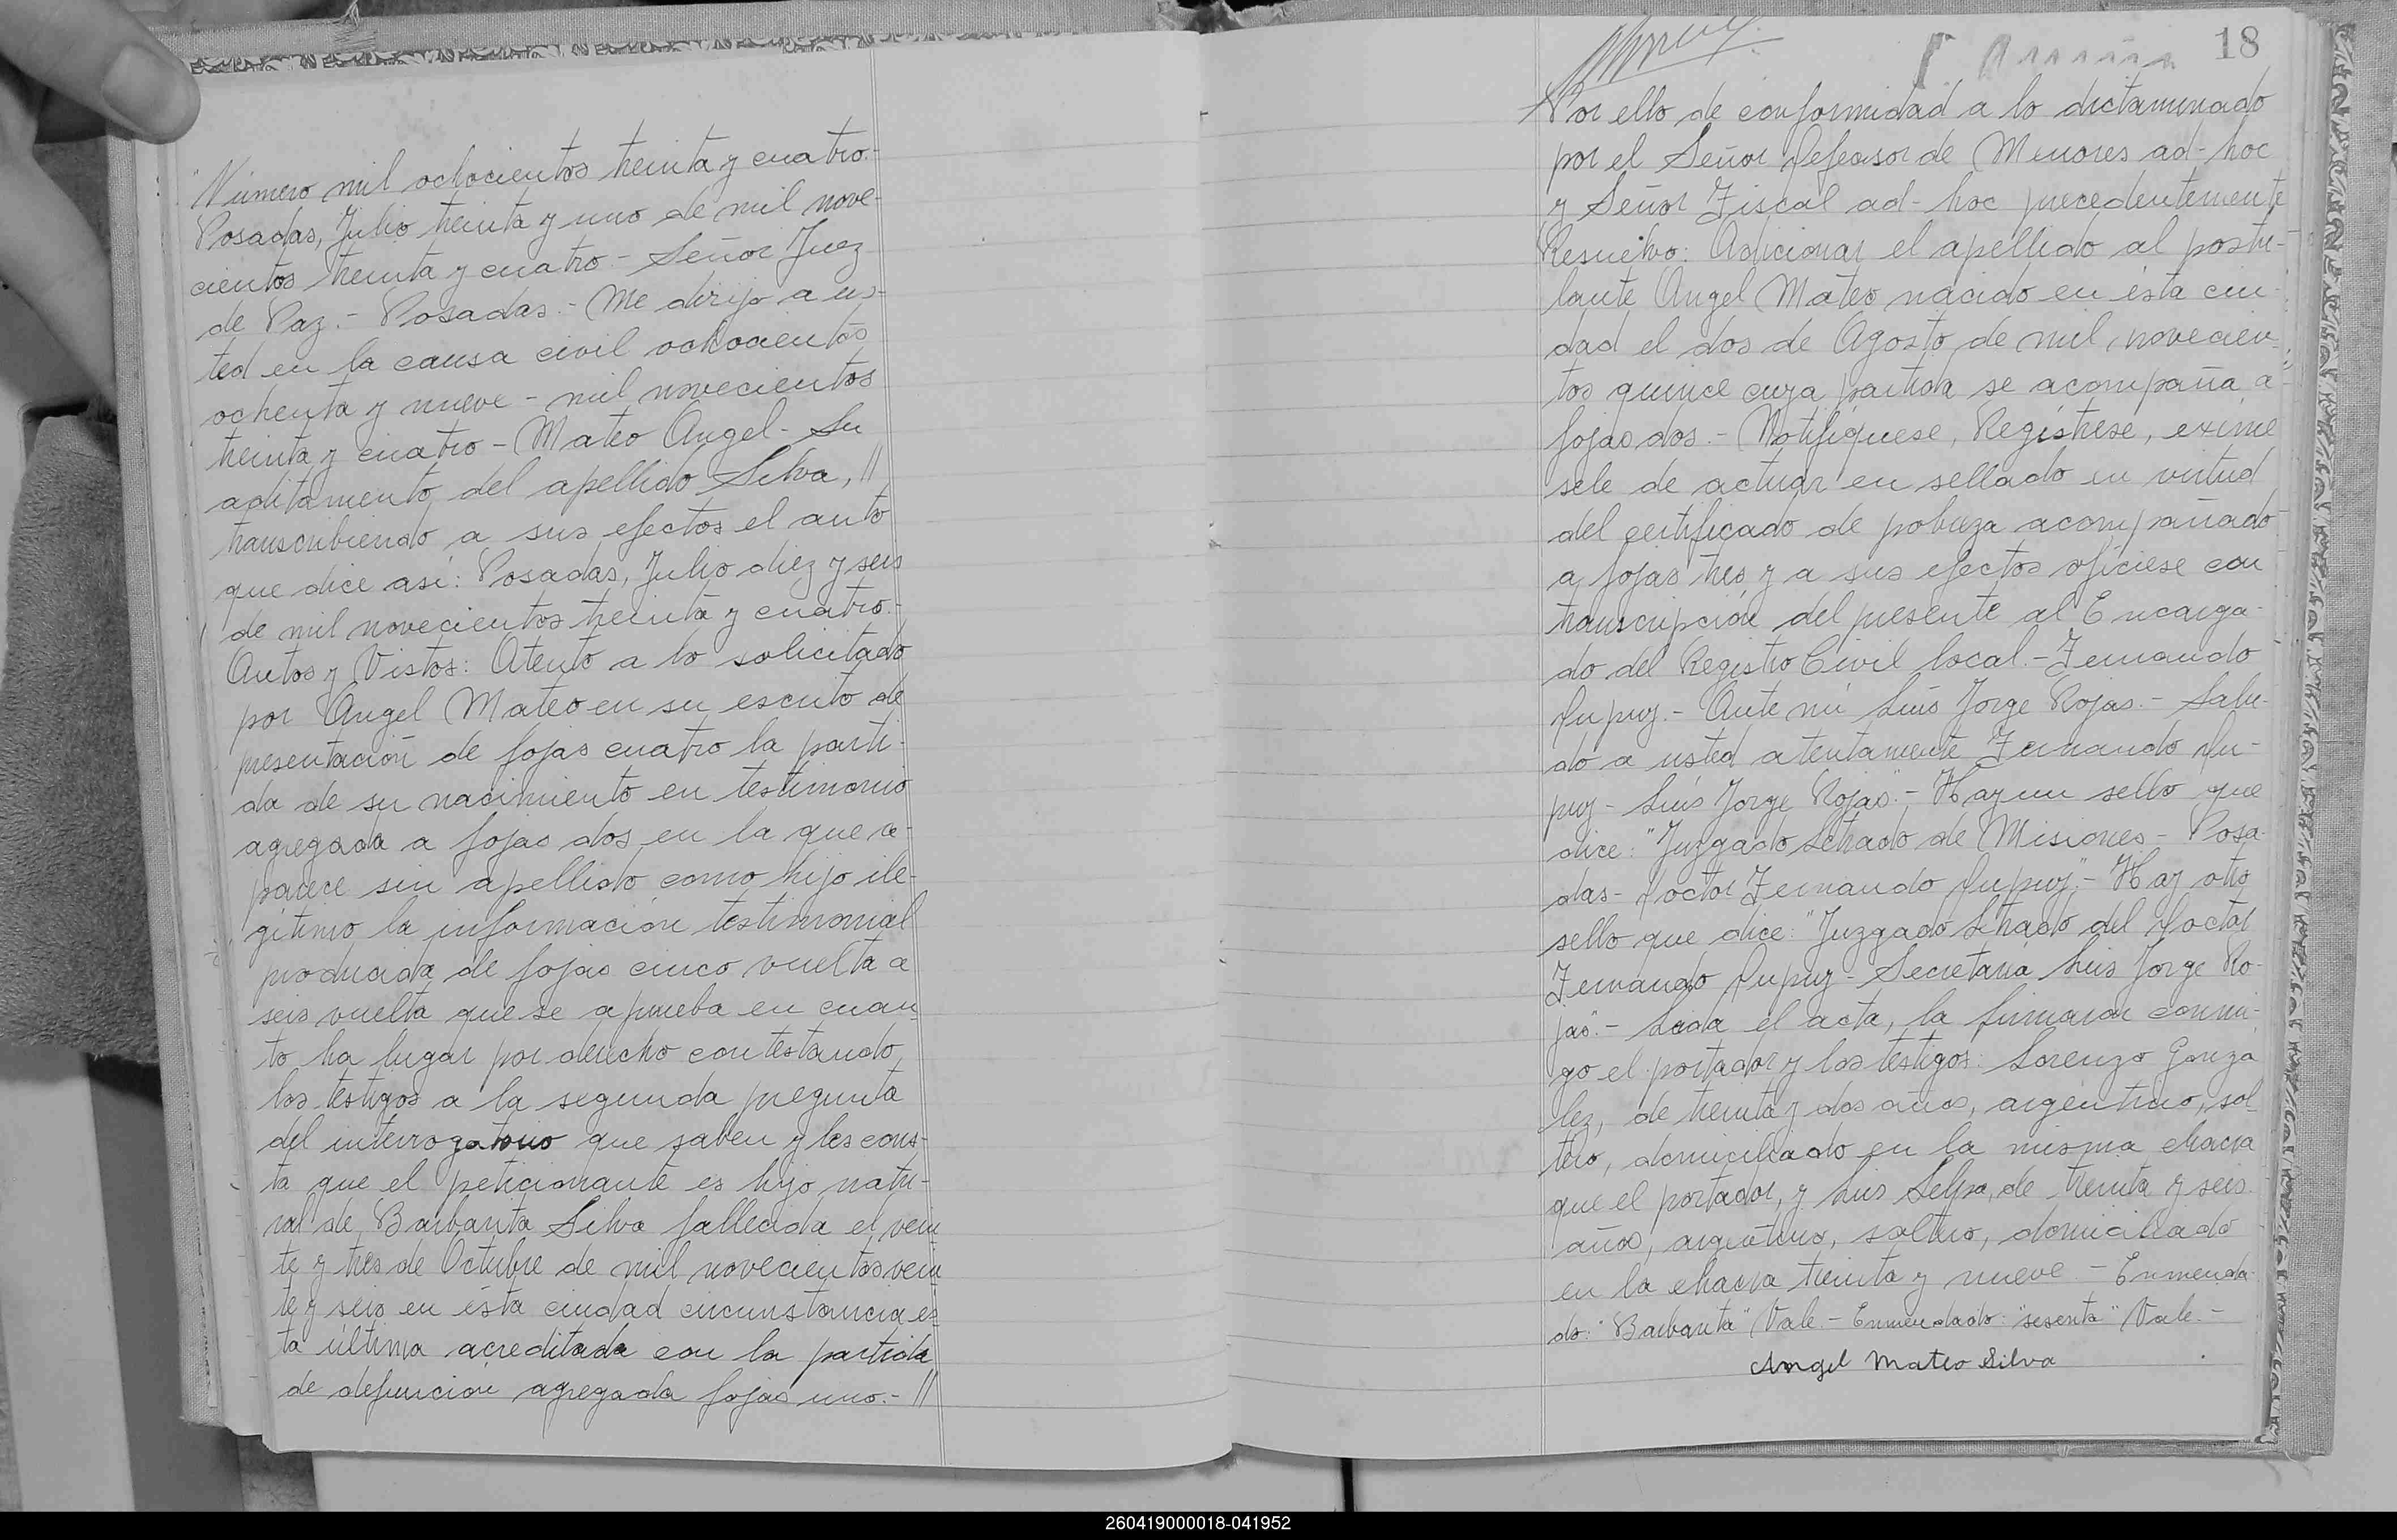 "Número mil ochocientos treinta y cuatro.-
Posadas, Julio treinta y uno de mil nove-
cientos treinta y cuatro.- Señor Juez
de Paz.- Posadas.- Me dirijo a us-
ted en la causa civil ochocientos
ochenta y nueve - mil novecientos
treinta y cuatro - Mateo Angel - Su
aditamento del apellido Silva, //
transcribiendo a sus efectos el auto
que dice así: Posadas, Julio diez y seis
de mil novecientos treinta y cuatro.-
Autos y Vistos: Atento a lo solicitado
por Angel Mateo en su escrito de
presentación de fojas cuatro la parti-
da de su nacimiento en testimonio
agregada a fojas dos en la que a-
parece sin apellido como hijo ile-
gítimo la información testimonial
producida de fojas cinco vuelta a
seis vuelta que se aprueba en cuan-
to ha lugar por derecho contestando
los testigos a la segunda pregunta
del interrogatorio que saben y les cons-
ta que el peticionante es hijo natu-
ral de Barbarita Silva fallecida el vein
te y tres de Octubre de mil novecientos vein
te y seis en ésta ciudad circunstancia es-
ta última acreditada con la partida
de defunción agregada fojas uno.- //
18
Por ello de conformidad a lo dictaminado
por el Señor Defensor de Menores ad-hoc
y Señor Fiscal ad-hoc precedentemente
Resuelvo: Adicionar el apellido al postu-
lante Angel Mateo nacido en ésta ciu-
dad el dos de Agosto de mil novecien-
tos quince cuya partida se acompaña a
fojas dos.- Notifíquese, Regístrese, exíme
sele de actuar en sellado en virtud
del certificado de pobreza acompañado
a fojas tres y a sus efectos ofíciese con
transcripción del presente al Encarga-
do del Registro Civil local.- Fernando
Dupuy.- Ante mí Luis Jorge Rojas.- Salu-
do a usted atentamente Fernando Du-
puy - Luis Jorge Rojas".- Hay un sello que
dice: "Juzgado Letrado de Misiones - Posa-
das - Doctor Fernando Dupuy".- Hay otro
sello que dice: "Juzgado Letrado del Doctor
Fernando Dupuy - Secretaría Luis Jorge Ro-
jas".- Leída el acta, la firmaron conmi-
go el portador y los testigos: Lorenzo Gonza
lez, de treinta y dos años, argentino, sol-
tero, domiciliado en la misma chacra
que el portador, y Luis de treinta y seis
años, argentino, soltero, domiciliado
en la chacra treinta y nueve.- Enmenda-
do: "Barbarita" Vale.- Enmendado: "sesenta" Vale.-
Angel Mateo Silva
260419000018-041952